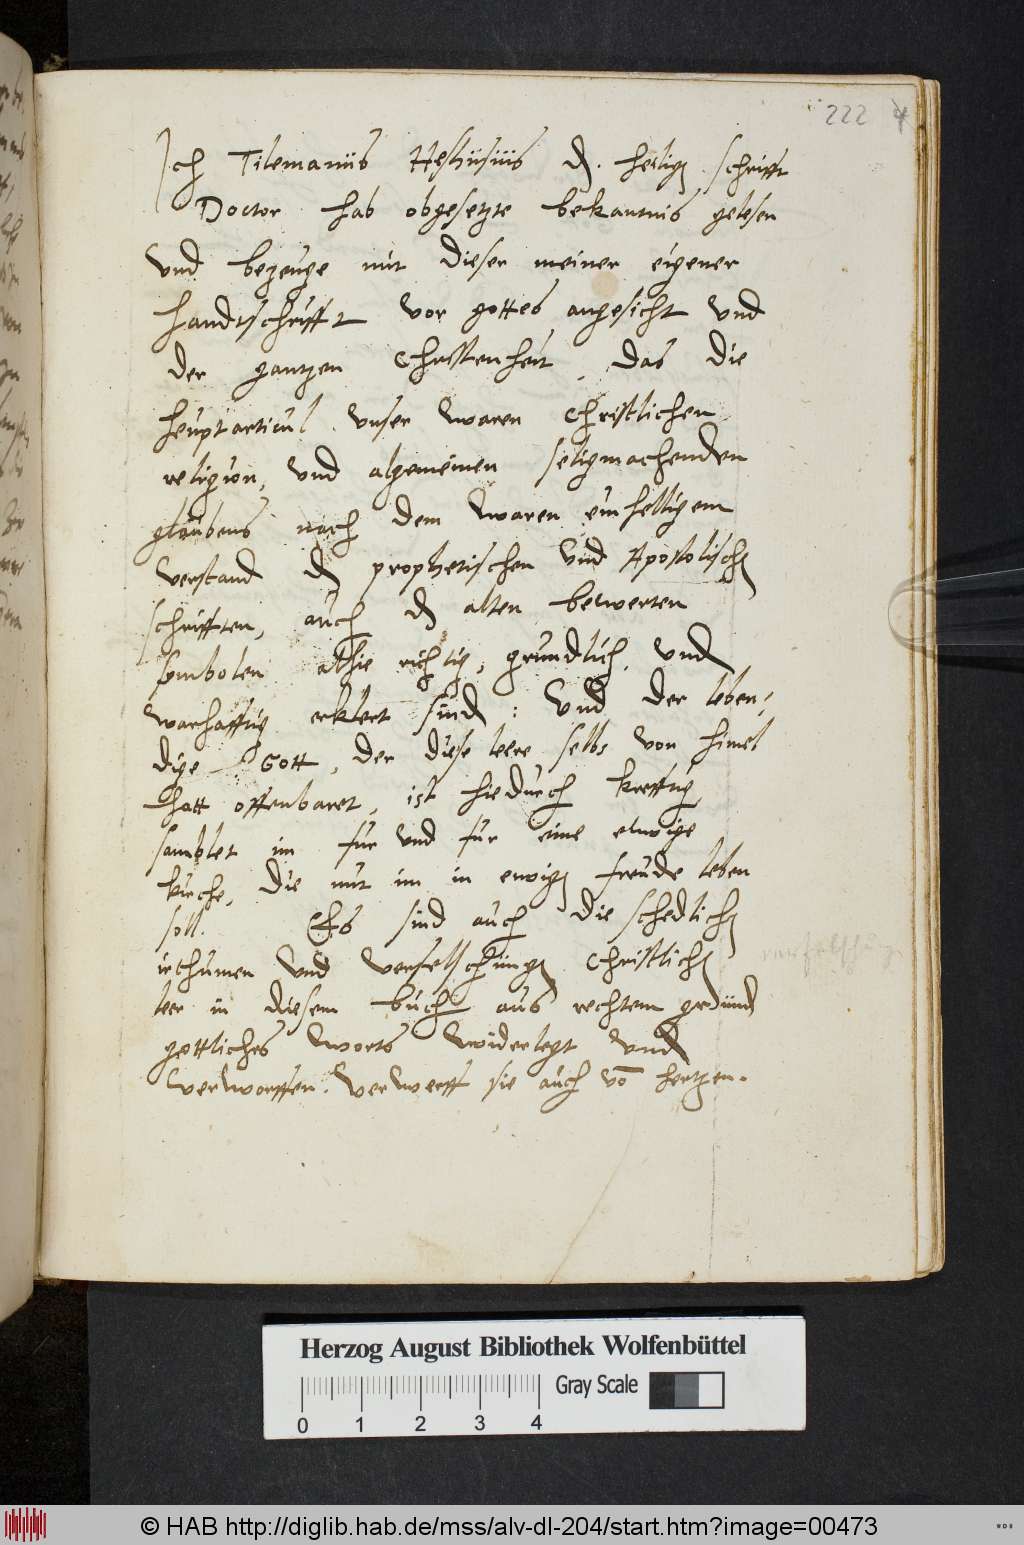 222 4
Ich Tilemanus Heshusius d. heilig schrifft
Doctor hab obgesetzte bekantnis gelesen
vnd bezeuge mit dieser meiner eigener
handtschrifft vor gottes angesicht vnd
der gantzen Christenheit, das die
heuptarticul vnser waren Christlichen
religion, vnd algemeinen seligmachenden
glaubens nach dem waren einhelligem
verstand d prophetischen vnd Apostolisch
schrifften, auch d alten bewerten
symbolen alhie richtig, grundlich, vnd
warhafftig erklert sind: Vnd der leben,
dige Gott, der diese leere selbs von himel
hatt offenbaret, ist hiedurch krefftig,
samblet im fur vnd fur eine ewige
kirche, die mit im in ewig freude leben
soll. Es sind auch die schedlich
irthumen vnd verfelschung Christlich
leer in diesem buch aus rechtem grund
gottliches worts widerlegt vnd
verworffen. verwerff sie auch vō hertzen.
verfelschung
Herzog August Bibliothek Wolfenbüttel
0 1 2 3 4 Gray Scale
© HAB http://diglib.hab.de/mss/alv-dl-204/start.htm?image=00473